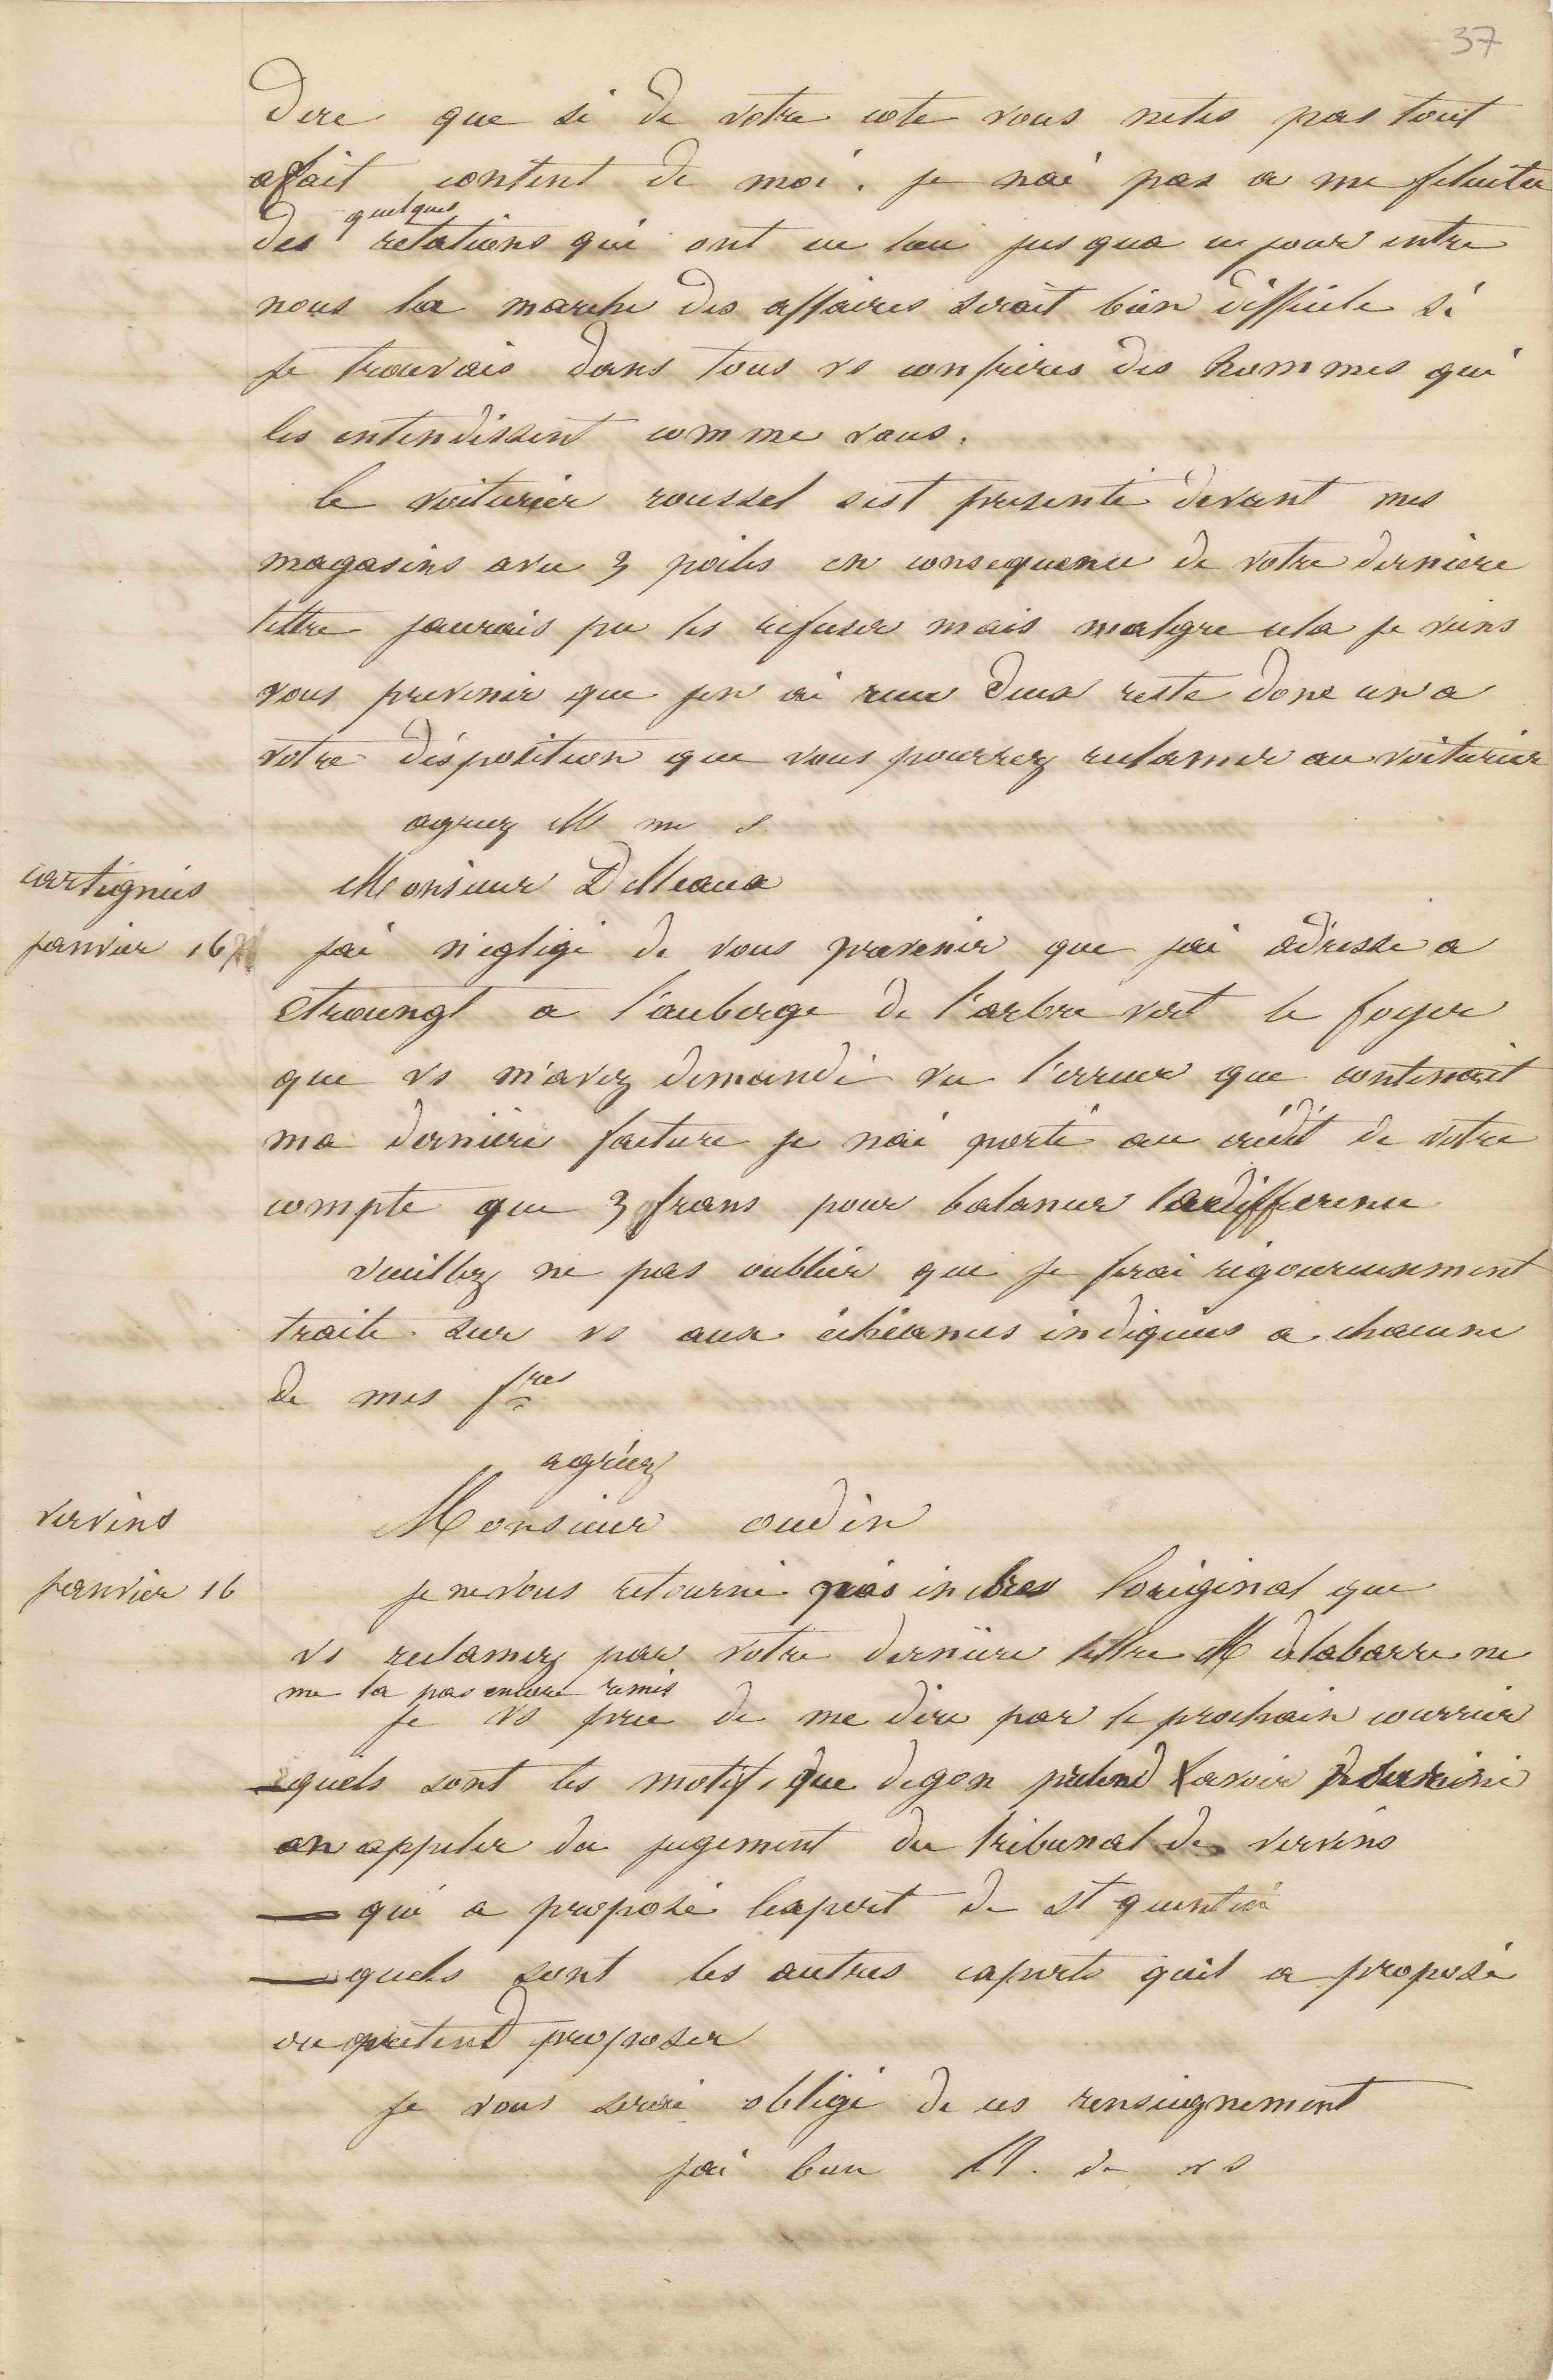 37
dire que si de votre cote vous netes pas tout
afait content de moi. je nai pas a me feliciter
quelques
des relations qui ont eu lieu jusqua ce jour entre
nous la marche des affaires serait bien difficile si
je trouvais dans tous vs confrères des hommes qui
les entendissent comme vous.
le voiturier roussel sest presenté devant mes
magasins avec 3 poiles en consequence de votre derniere
lettre jaurais pu les refuser mais malgre cela je viens
vous prevenir que jen ai recu deux reste donc un a
votre disposition que vous pourrez reclamer au voiturier
agreez M m s
cartignies
Monsieur Delleaux
janvier 16
jai négligé de vous prevenir que jai adressé a
etroungt a l'auberge de l'arbre vert le foyer
que vs m'avez demandé vu l'erreur que contenait
ma dernière facture je nai porté au crédit de votre
compte que 3 frans pour balancer la difference
veuillez ne pas oublier que je ferai rigoureusement
traite sur vs aux échéances indiquées a chacune
de mes fres
agréez
vervins
Monsieur oudin
janvier 16
je ne vous retourne pas loriginal que
vs reclamez par votre derniere lettre M delabarre ne
me la pas encore remis
je vs prie de me dire par le prochain courrier
quels sont les motifs que degon pretend avoir
en appeler du jugement du tribunal de vervins
qui a proposé lexpert de st quentin
quels sont les autres experts quil a proposé
ou pretend proposer
je vous serai obligé de ces renseignement
jai bien M. de vs